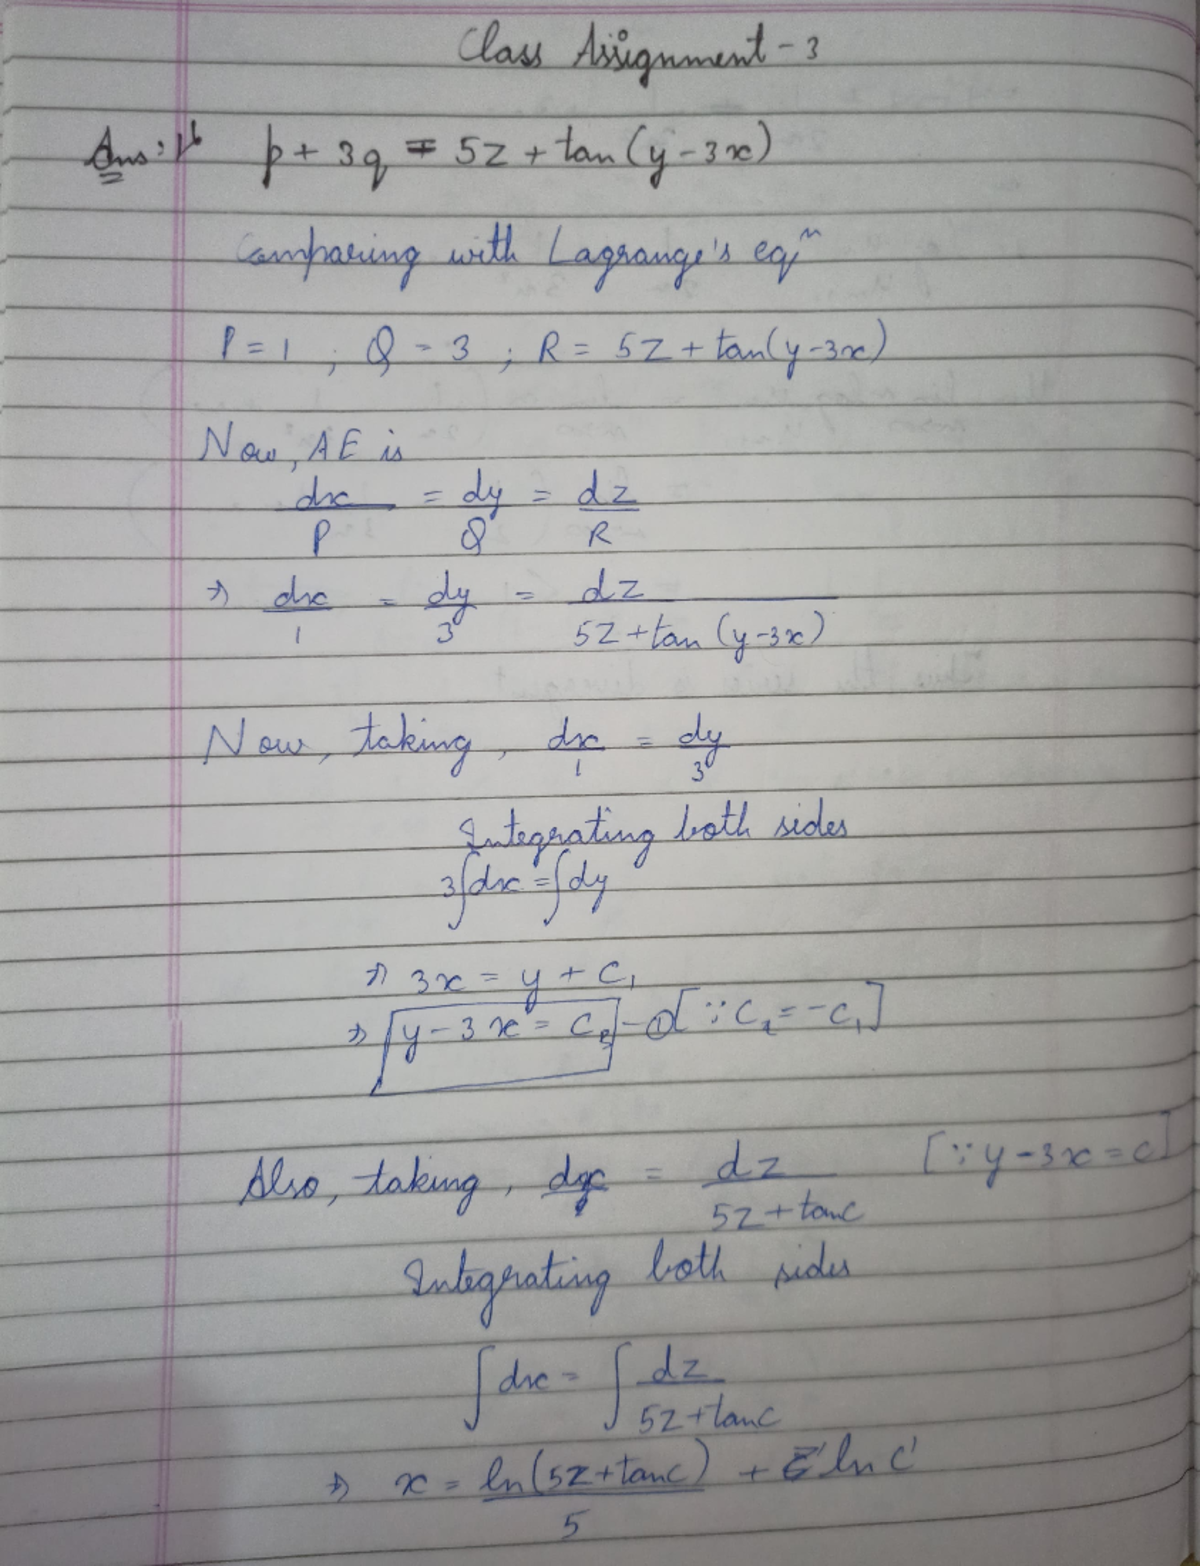 Class Assignment - 3
Ans: 1) p + 3q = 5z + tan(y - 3x)
Comparing with Lagrange's eqⁿ
P = 1 ; Q = 3 ; R = 5z + tan(y - 3x)
Now, AE is
dx/P = dy/Q = dz/R
⇒ dx/1 = dy/3 = dz/(5z + tan(y - 3x))
Now, taking, dx/1 = dy/3
Integrating both sides
3∫dx = ∫dy
⇒ 3x = y + C₁
⇒ y - 3x = C₂ - ① [∵ C₂ = -C₁]
Also, taking, dx = dz/(5z + tanc) [∵ y - 3x = c]
Integrating both sides
∫dx = ∫dz/(5z + tanc)
⇒ x = ln(5z + tanc)/5 + ln c'